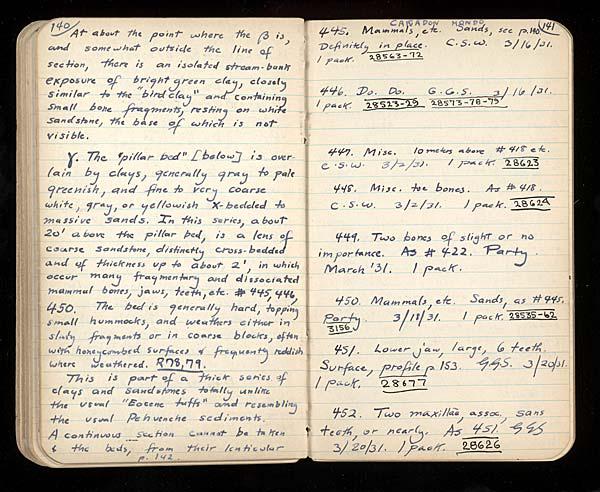 140
At about the point where the β is,
and somewhat outside the line of
section, there is an isolated stream-bank
exposure of bright green clay, closely
similar to the "bird clay" and containing
small bone fragments, resting on white
sandstone, the base of which is not
visible.
γ. The "pillar bed" [below] is over-
lain by clays, generally gray to pale
greenish, and fine to very coarse
white, gray, or yellowish x-bedded to
massive sands. In this series, about
20' above the pillar bed, is a lens of
coarse sandstone, distinctly cross-bedded
and of thickness up to about 2', in which
occur many fragmentary and dissociated
mammal bones, jaws, teeth, etc. # 445, 446,
450. The bed is generally hard, topping
small hummocks, and weathers either in
slaty fragments or in coarse blocks, often
with honeycombed surfaces & frequently reddish
where weathered. R78,79.
This is part of a thick series of
clays and sandstones totally unlike
the usual "Eocene tuffs" and resembling
the usual Pehuenche sediments.
A continuous section cannot be taken
& the beds, from their lenticular
p. 142
CAÑADON HONDO
141
445. Mammals, etc. Sands, see p. 140
Definitely in place. C.S.W. 3/16/31.
1 pack. 28563-72
446. Do. Do. G.G.S. 3/16/31.
1 pack. 28523-29 28573-78-79
447. Misc. 10 meters above # 418 etc.
C.S.W. 3/2/31. 1 pack. 28623
448. Misc. toe bones. As # 418.
C.S.W. 3/2/31. 1 pack. 28624
449. Two bones of slight or no
importance. As # 422. Party.
March '31. 1 pack.
450. Mammals, etc. Sands, as # 445.
Party. 3/18/31. 1 pack. 28535-62
3156
451. Lower jaw, large, 6 teeth.
Surface, profile p. 153. GGS. 3/20/31.
1 pack. 28677
452. Two maxillae, assoc., sans
teeth, or nearly. As 451. GGS
3/20/31. 1 pack. 28626